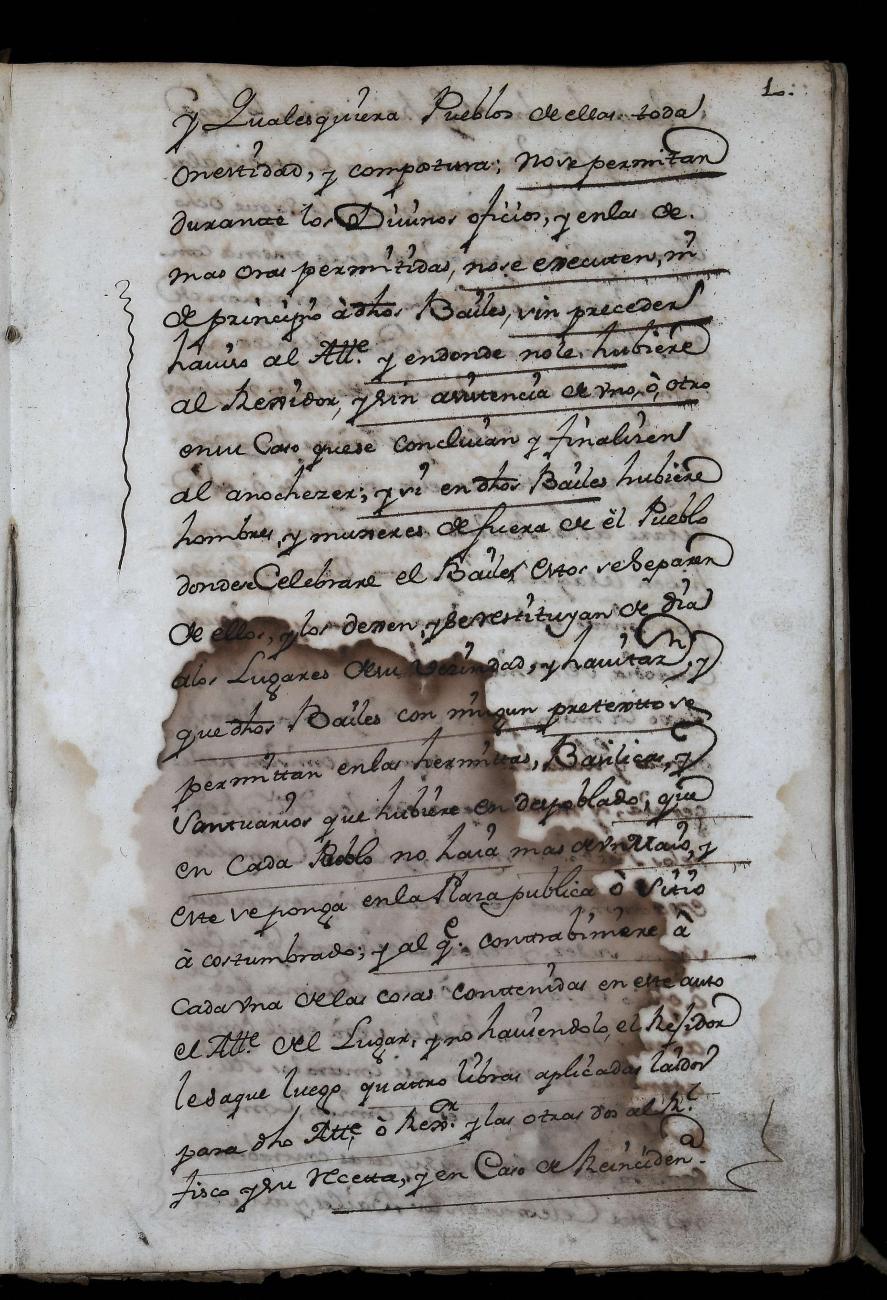 1.
y Qualesquiera Pueblos de ellas toda
onestidad, y compostura; no se permitan
durante los Divinos oficios, y en las de
mas oras permitidas, no se executen, ni
de principio à dhos Bailes, sin preceder
haviso al Atte. y en donde no le hubiere
al Rexidor, y sin asistencia de vno, ò, otro
en su Caso que se concluian y finalisen
al anochezer; y si en dhos Bailes hubiere
hombres, y mugeres de fuera de el Pueblo
donde se Celebrare el Baile, estos se Separen
de ellos, y los dexen, y se restituyan de dia
a los Lugares de su Vezindad, y havitazn, y
que dhos Bailes con ningun pretextto se
permittan en las hermittas, Basilicas, y
Santuarios que hubiere en despoblado; que
en Cada Pueblo no haia mas de vn Maio, y
este se ponga en la Plaza publica ò Sitio
à costumbrado; y al q.e contrabiniere à
Cada vna de las cosas conttenidas en este auto
el Atte. del Lugar, y no haviendolo, el Rexidor
le saque luego quattro libras aplicadas las dos
para dho Atte. ò Rexr. y las otras dos al Rl.
fisco y su Rcetta, y en Caso de Reincidena.